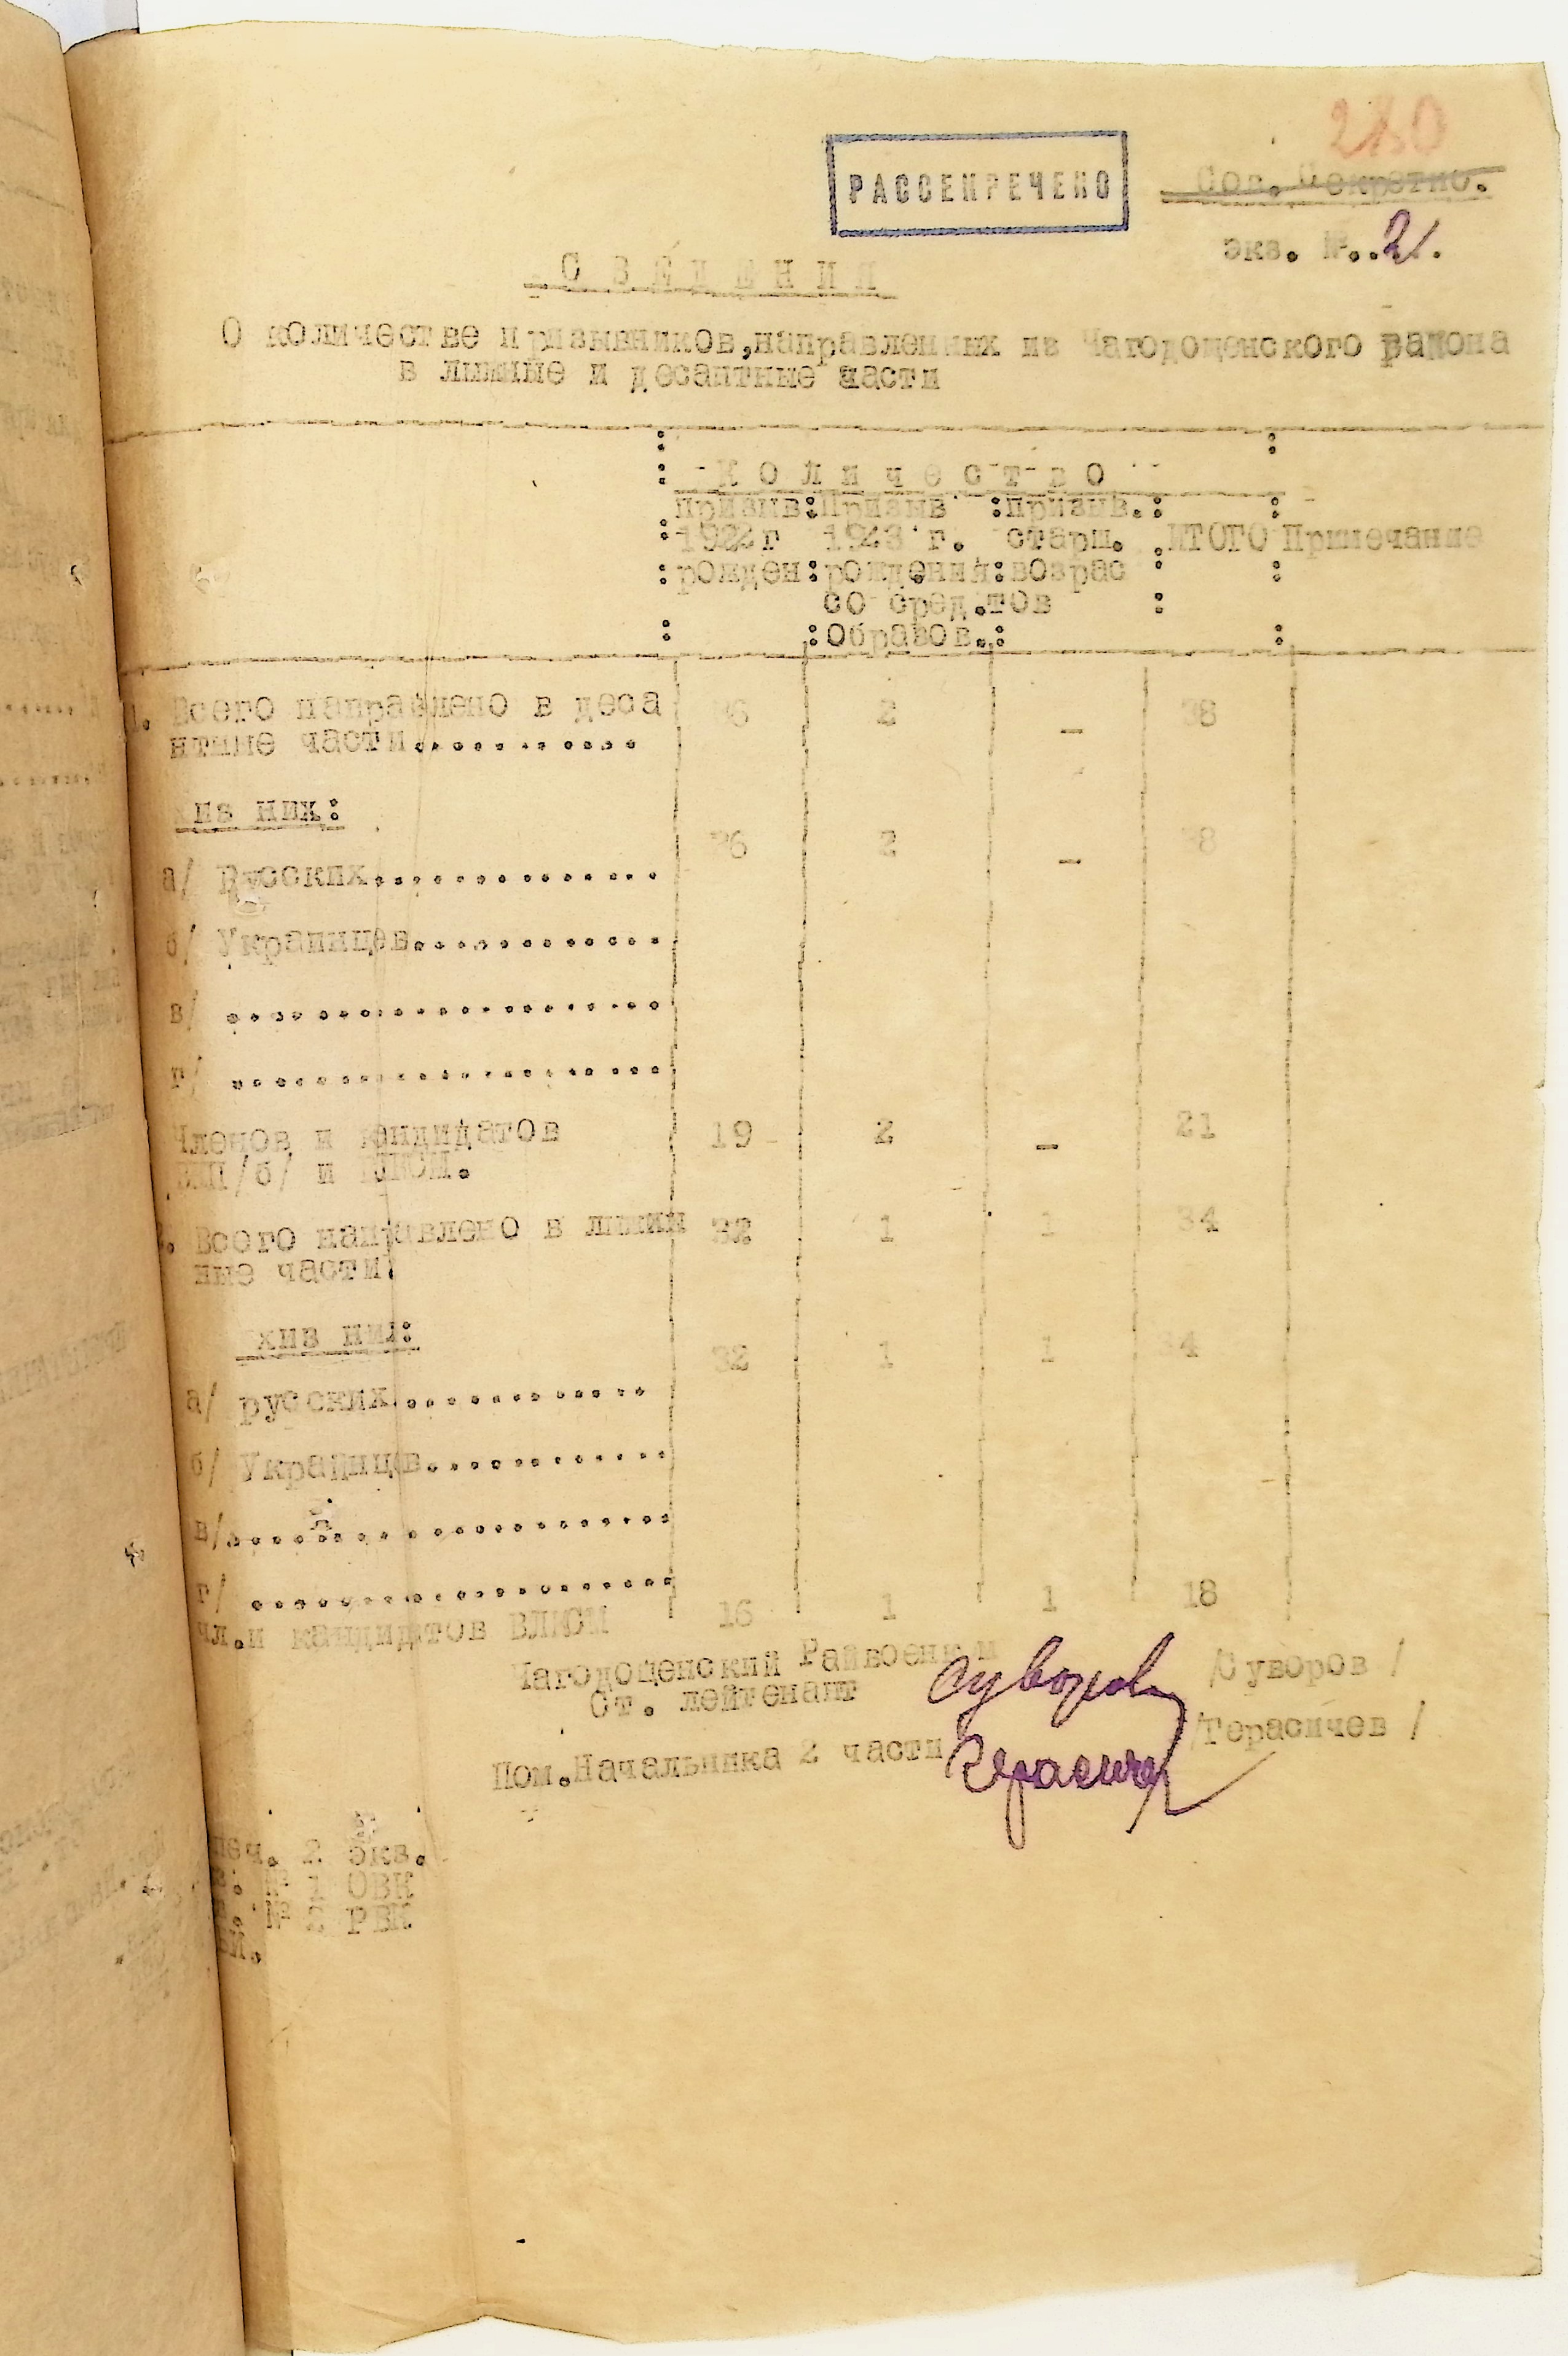 280
РАССЕКРЕЧЕНО
Сов. Секретно.
экз. №..2.
С В Е Д Е Н И Я
О количестве призывников,направленных из Чагодощенского района
в лыжные и десантные части
К о л и ч е с т в о
призыв:Призыв :призыв.:
1922г 1923 г. старш. ИТОГО Примечание
рожден:рождения:возрас
со сред.тов
:Образов.:
1. Всего направлено в деса 36 2 – 38
нтные части
из них:
36 2 – 38
а/ Русских
б/ Украинцев
в/
г/
Членов и кандидатов 19 2 – 21
ВКП/б/ и ВЛКСМ.
Всего направлено в лыжн 32 1 1 34
ные части
хиз них:
32 1 1 34
а/ русских
б/ Украинцев
в/
г/
чл.и кандидтов ВЛКСМ 16 1 1 18
Чагодощенский Райвоенком Суворов /Суворов /
Ст. лейтенант
Пом.Начальника 2 части Герасичев /Герасичев /
печ. 2 экз.
№ 1 ОВК
№ 2 РВК